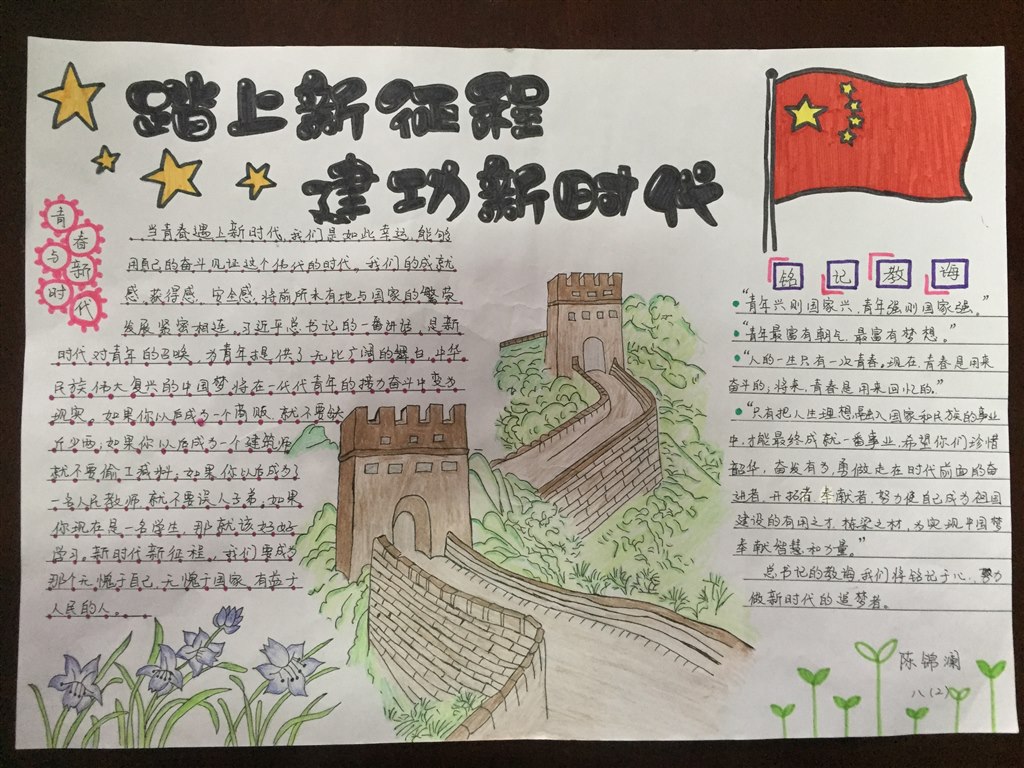 踏上新征程
建功新时代
青春与新时代
当青春遇上新时代,我们是如此幸运,能够
用自己的奋斗见证这个伟大的时代。我们的成就
感、获得感、安全感,将前所未有地与国家的繁荣
发展紧密相连。习近平总书记的一番讲话,是新
时代对青年的召唤,为青年提供了无比广阔的舞台,中华
民族伟大复兴的中国梦将在一代代青年的接力奋斗中变为
现实。如果你以后成为一个商贩,就不要缺
斤少两;如果你以后成为一个建筑师,
就不要偷工减料;如果你以后成为了
一名人民教师,就不要误人子弟。如果
你现在是一名学生,那就该好好
学习。新时代新征程,我们要成为
那个无愧于自己,无愧于国家,有益于
人民的人。
铭记教诲
“青年兴则国家兴,青年强则国家强。”
“青年最富有朝气,最富有梦想。”
“人的一生只有一次青春。现在,青春是用来
奋斗的;将来,青春是用来回忆的。”
“只有把人生理想融入国家和民族的事业
中,才能最终成就一番事业。希望你们珍惜
韶华,奋发有为,勇做走在时代前面的奋
进者、开拓者、奉献者,努力使自己成为祖国
建设的有用之才、栋梁之材,为实现中国梦
奉献智慧和力量。”
总书记的教诲,我们将铭记于心,努力
做新时代的追梦者。
陈锦澜
八(2)